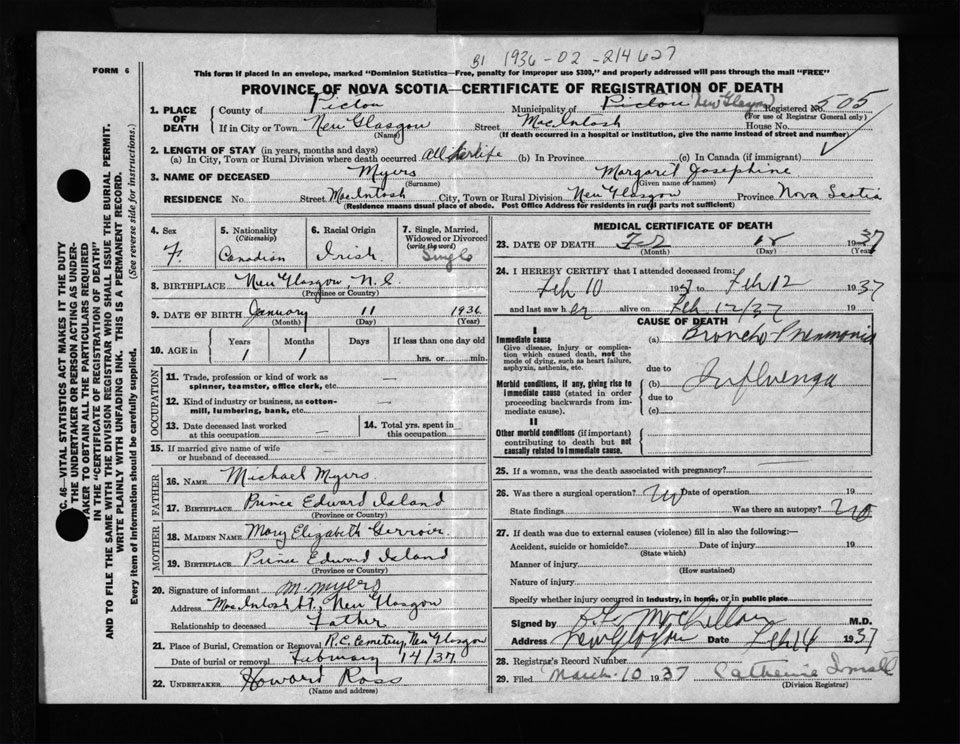 B1 1936-02-214627
FORM 6
This form if placed in an envelope, marked "Dominion Statistics—Free, penalty for improper use $300," and properly addressed will pass through the mail "FREE"
PROVINCE OF NOVA SCOTIA—CERTIFICATE OF REGISTRATION OF DEATH
1. PLACE OF DEATH
County of Pictou Municipality of Pictou New Glasgow Registered No. 505
(For use of Registrar General only)
If in City or Town New Glasgow Street MacIntosh House No.
(Name) (If death occurred in a hospital or institution, give the name instead of street and number)
2. LENGTH OF STAY (in years, months and days)
(a) In City, Town or Rural Division where death occurred All her life (b) In Province (c) In Canada (if immigrant)
3. NAME OF DECEASED Myers Margaret Josephine
(Surname) (Given name or names)
RESIDENCE No Street MacIntosh City, Town or Rural Division New Glasgow Province Nova Scotia
(Residence means usual place of abode. Post Office Address for residents in rural parts not sufficient)
4. Sex
F.
5. Nationality
(Citizenship)
Canadian
6. Racial Origin
Irish
7. Single, Married, Widowed or Divorced
(write the word)
Single
8. BIRTHPLACE New Glasgow, N.S.
(Province or Country)
9. DATE OF BIRTH January 11 1936
(Month) (Day) (Year)
10. AGE in Years Months Days If less than one day old
1 1 hrs. or min.
OCCUPATION
11. Trade, profession or kind of work as spinner, teamster, office clerk, etc. —
12. Kind of industry or business, as cotton-mill, lumbering, bank, etc. —
13. Date deceased last worked at this occupation —
14. Total yrs. spent in this occupation
15. If married give name of wife or husband of deceased —
FATHER
16. NAME Michael Myers
17. BIRTHPLACE Prince Edward Island
(Province or Country)
MOTHER
18. MAIDEN NAME Mary Elizabeth
19. BIRTHPLACE Prince Edward Island
(Province or Country)
20. Signature of informant M. Myers
Address MacIntosh St., New Glasgow
Relationship to deceased Father
21. Place of Burial, Cremation or Removal R.C. Cemetery, New Glasgow
Date of burial or removal February 14/37
22. UNDERTAKER Howard Ross
(Name and address)
MEDICAL CERTIFICATE OF DEATH
23. DATE OF DEATH Feb 1937
(Month) (Day) (Year)
24. I HEREBY CERTIFY that I attended deceased from:
Feb 10 1937 to Feb 12 1937
and last saw her alive on Feb 12/37 19
CAUSE OF DEATH
I
Immediate cause
Give disease, injury or complication which caused death, not the mode of dying, such as heart failure, asphyxia, asthenia, etc.
(a) Broncho-Pneumonia
due to
Morbid conditions, if any, giving rise to immediate cause (stated in order proceeding backwards from immediate cause).
(b) Influenza
due to
(c)
II
Other morbid conditions (if important) contributing to death but not causally related to immediate cause.
25. If a woman, was the death associated with pregnancy? —
26. Was there a surgical operation? No Date of operation 19
State findings Was there an autopsy? No
27. If death was due to external causes (violence) fill in also the following:—
Accident, suicide or homicide? Date of injury 19
(State which)
Manner of injury
(How sustained)
Nature of injury
Specify whether injury occurred in industry, in home, or in public place
Signed by M.D.
Address New Glasgow Date Feb 16 1937
28. Registrar's Record Number
29. Filed March 10 1937 Catherine
(Division Registrar)
C. 46—VITAL STATISTICS ACT MAKES IT THE DUTY
THE UNDERTAKER OR PERSON ACTING AS UNDER-
TAKER TO OBTAIN ALL THE PARTICULARS REQUIRED
IN THE "CERTIFICATE OF REGISTRATION OF DEATH"
AND TO FILE THE SAME WITH THE DIVISION REGISTRAR WHO SHALL ISSUE THE BURIAL PERMIT.
WRITE PLAINLY WITH UNFADING INK. THIS IS A PERMANENT RECORD.
Every item of information should be carefully supplied. (See reverse side for instructions.)